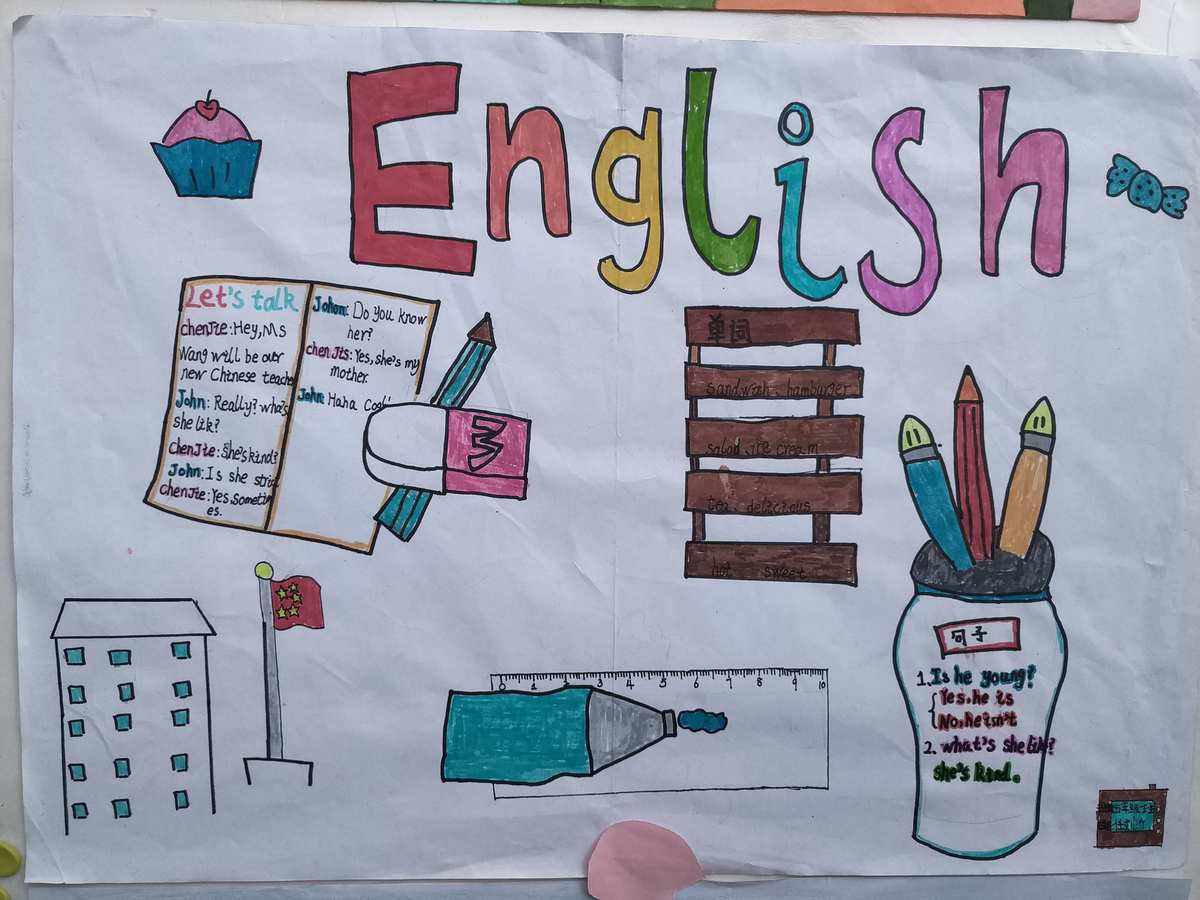 English
Let's talk
chenJie:Hey,Ms
Wang will be our
new Chinese teache
John: Really? who's
she lik?
chenJie: She's kind?
John: Is she stric
ChenJie:Yes,someti
es.
Johon: Do you know
her?
chenJis: Yes, she's my
mother.
John: Haha Cool!
单词
sandwish、hamburger
salad、ice cream
tea、delicious
hot sweet
0 1 2 3 4 5 6 7 8 9 10
句子
1.Is he young?
Yes.he is
No,he isn't
2. what's she lik?
she's kind.